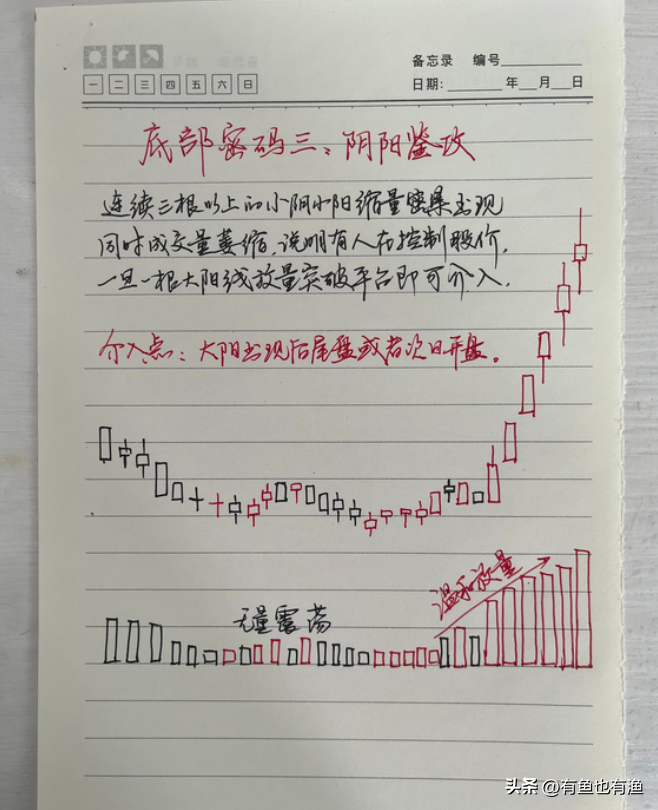 备忘录 编号
一 二 三 四 五 六 日
日期: 年 月 日
底部密码三：阴阳鉴攻
连续三根以上的小阴小阳缩量密集出现
同时成交量萎缩，说明有人在控制股价，
一旦一根大阳线放量突破平台即可介入。
介入点：大阳出现后尾盘或者次日开盘。
温和放量
无量震荡
头条 @有鱼也有渔